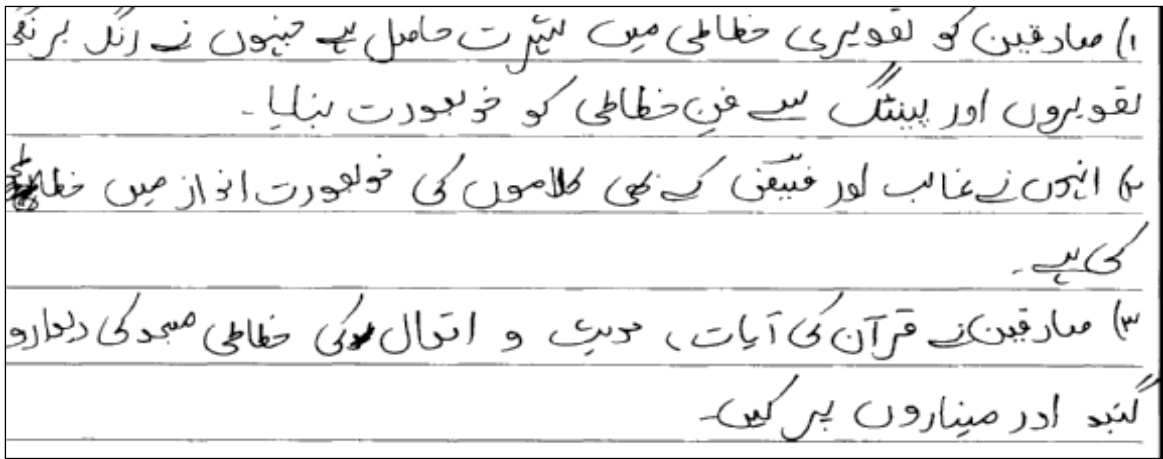 ۱) صادقین کو تصویری خطاطی میں شہرت حاصل ہے جنہوں نے رنگ برنگی
تصویروں اور پینٹنگ سے فنِ خطاطی کو خوبصورت بنایا۔
۲) انہوں نے غالب اور فیض کے بھی کلاموں کی خوبصورت انداز میں خطاطی
کی ہے۔
۳) صادقین نے قرآن کی آیات، حدیث و اقوال کی خطاطی مسجد کی دیوارو
گنبد اور میناروں پر کیں۔